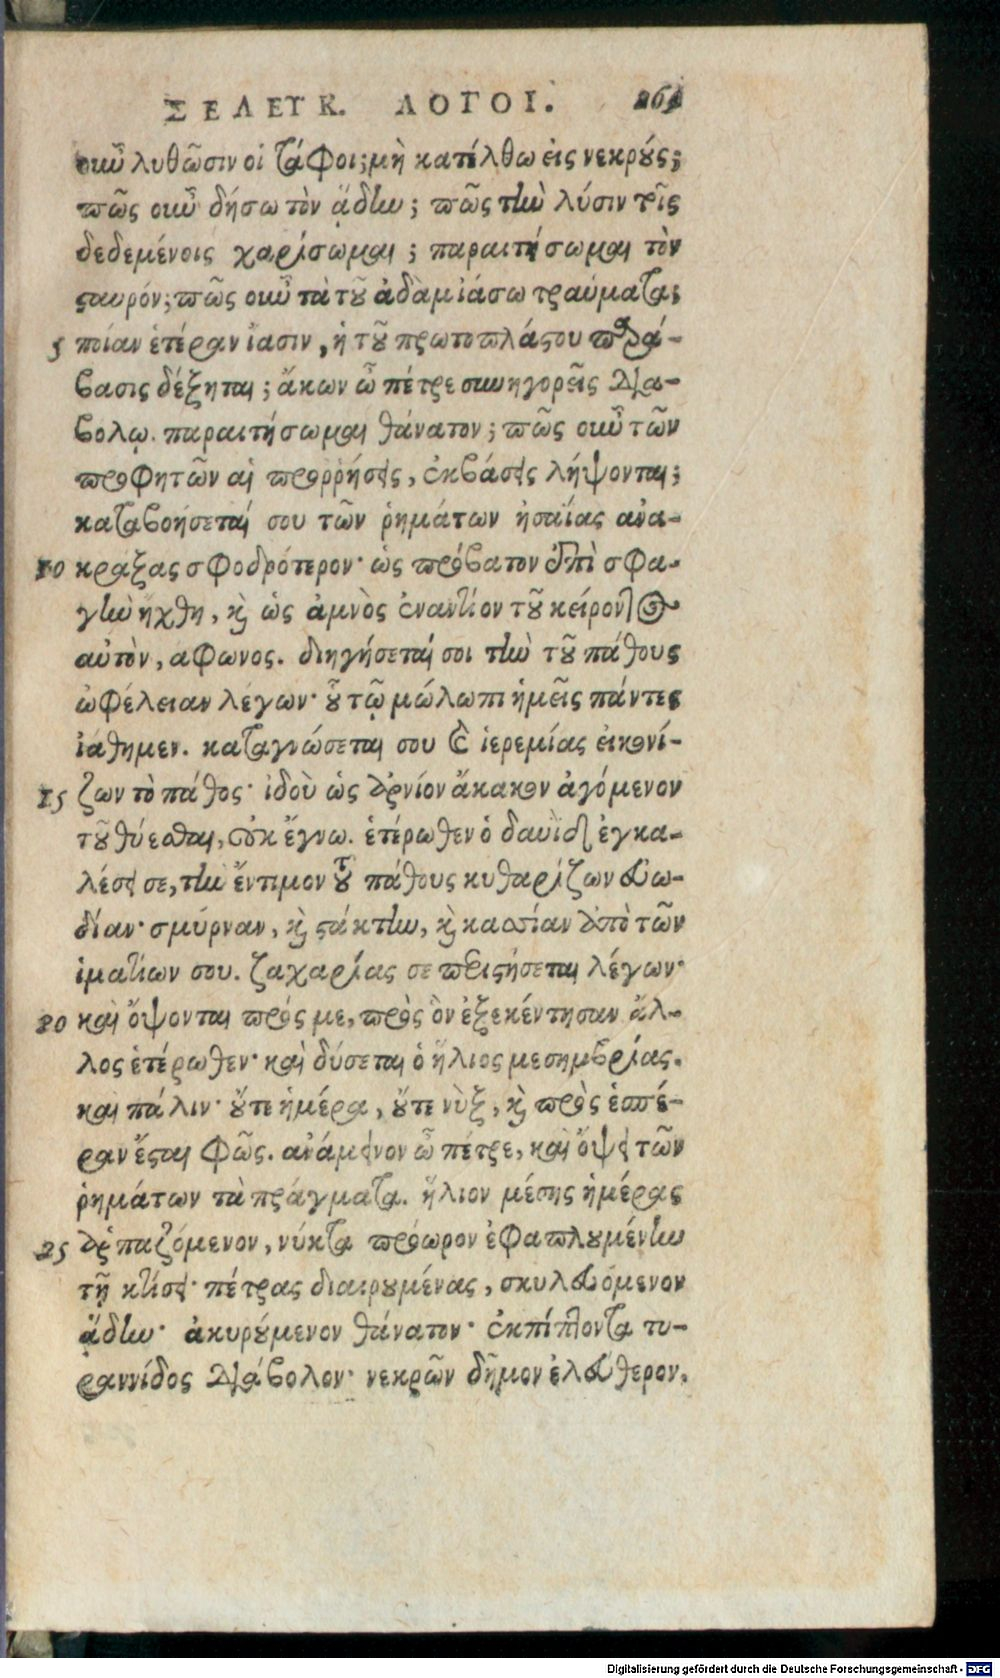 ΣΕΛΕΥΚ. ΛΟΓΟΙ. 261
οὖν λυθῶσιν οἱ τάφοι; μὴ κατέλθω εἰς νεκρούς;
πῶς οὖν δήσω τὸν ᾅδην; πῶς τὴν λύσιν τοῖς
δεδεμένοις χαρίσωμαι; παραιτήσωμαι τὸν
σταυρόν; πῶς οὖν τὰ τοῦ ἀδὰμ ἰάσω τραύματα;
5 ποίαν ἑτέραν ἴασιν, ἡ τοῦ πρωτοπλάστου παρά-
βασις δέξηται; ἄκων ὦ πέτρε συνηγορεῖς δια-
βόλῳ. παραιτήσωμαι θάνατον; πῶς οὖν τῶν
προφητῶν αἱ προρρήσεις, ἐκβάσεις λήψονται;
καταβοήσεταί σου τῶν ῥημάτων ἡσαΐας ἀνα-
10 κράξας σφοδρότερον· ὡς πρόβατον ἐπὶ σφα-
γὴν ἤχθη, καὶ ὡς ἀμνὸς ἐναντίον τοῦ κείροντος
αὐτὸν, αφωνος. διηγήσεταί σοι τὴν τοῦ πάθους
ὠφέλειαν λέγων· οὗ τῷ μώλωπι ἡμεῖς πάντες
ἰάθημεν. καταγνώσεται σου καὶ ἱερεμίας εἰκονί-
15 ζων τὸ πάθος· ἰδοὺ ὡς ἀρνίον ἄκακον ἀγόμενον
τοῦ θύεσθαι, οὐκ ἔγνω. ἑτέρωθεν ὁ δαυὶδ ἐγκα-
λέσει σε, τὴν ἔντιμον τοῦ πάθους κυθαρίζων εὐω-
δίαν· σμύρναν, καὶ στάκτην, καὶ κασσίαν ἀπὸ τῶν
ἱματίων σου. ζαχαρίας σε περιστήσεται λέγων·
20 καὶ ὄψονται πρός με, πρὸς ὃν ἐξεκέντησαν ἄλ-
λος ἑτέρωθεν· καὶ δύσεται ὁ ἥλιος μεσημβρίας.
και πάλιν· οὔτε ἡμέρα, οὔτε νὺξ, καὶ πρὸς ἑσπέ-
ραν ἔσται φῶς. ἀνάμεινον ὦ πέτρε, καὶ ὄψει τῶν
ῥημάτων τὰ πράγματα. ἥλιον μέσης ἡμέρας
25 ἁρπαζόμενον, νύκτα πρόωρον ἐφαπλουμένην
τῇ κτίσει· πέτρας διαιρουμένας, σκυλευόμενον
ᾅδην· ἀκυρούμενον θάνατον· ἐκπίπτοντα τυ-
ραννίδος διάβολον· νεκρῶν δῆμον ἐλεύθερον.
Digitalisierung gefördert durch die Deutsche Forschungsgemeinschaft - DFG